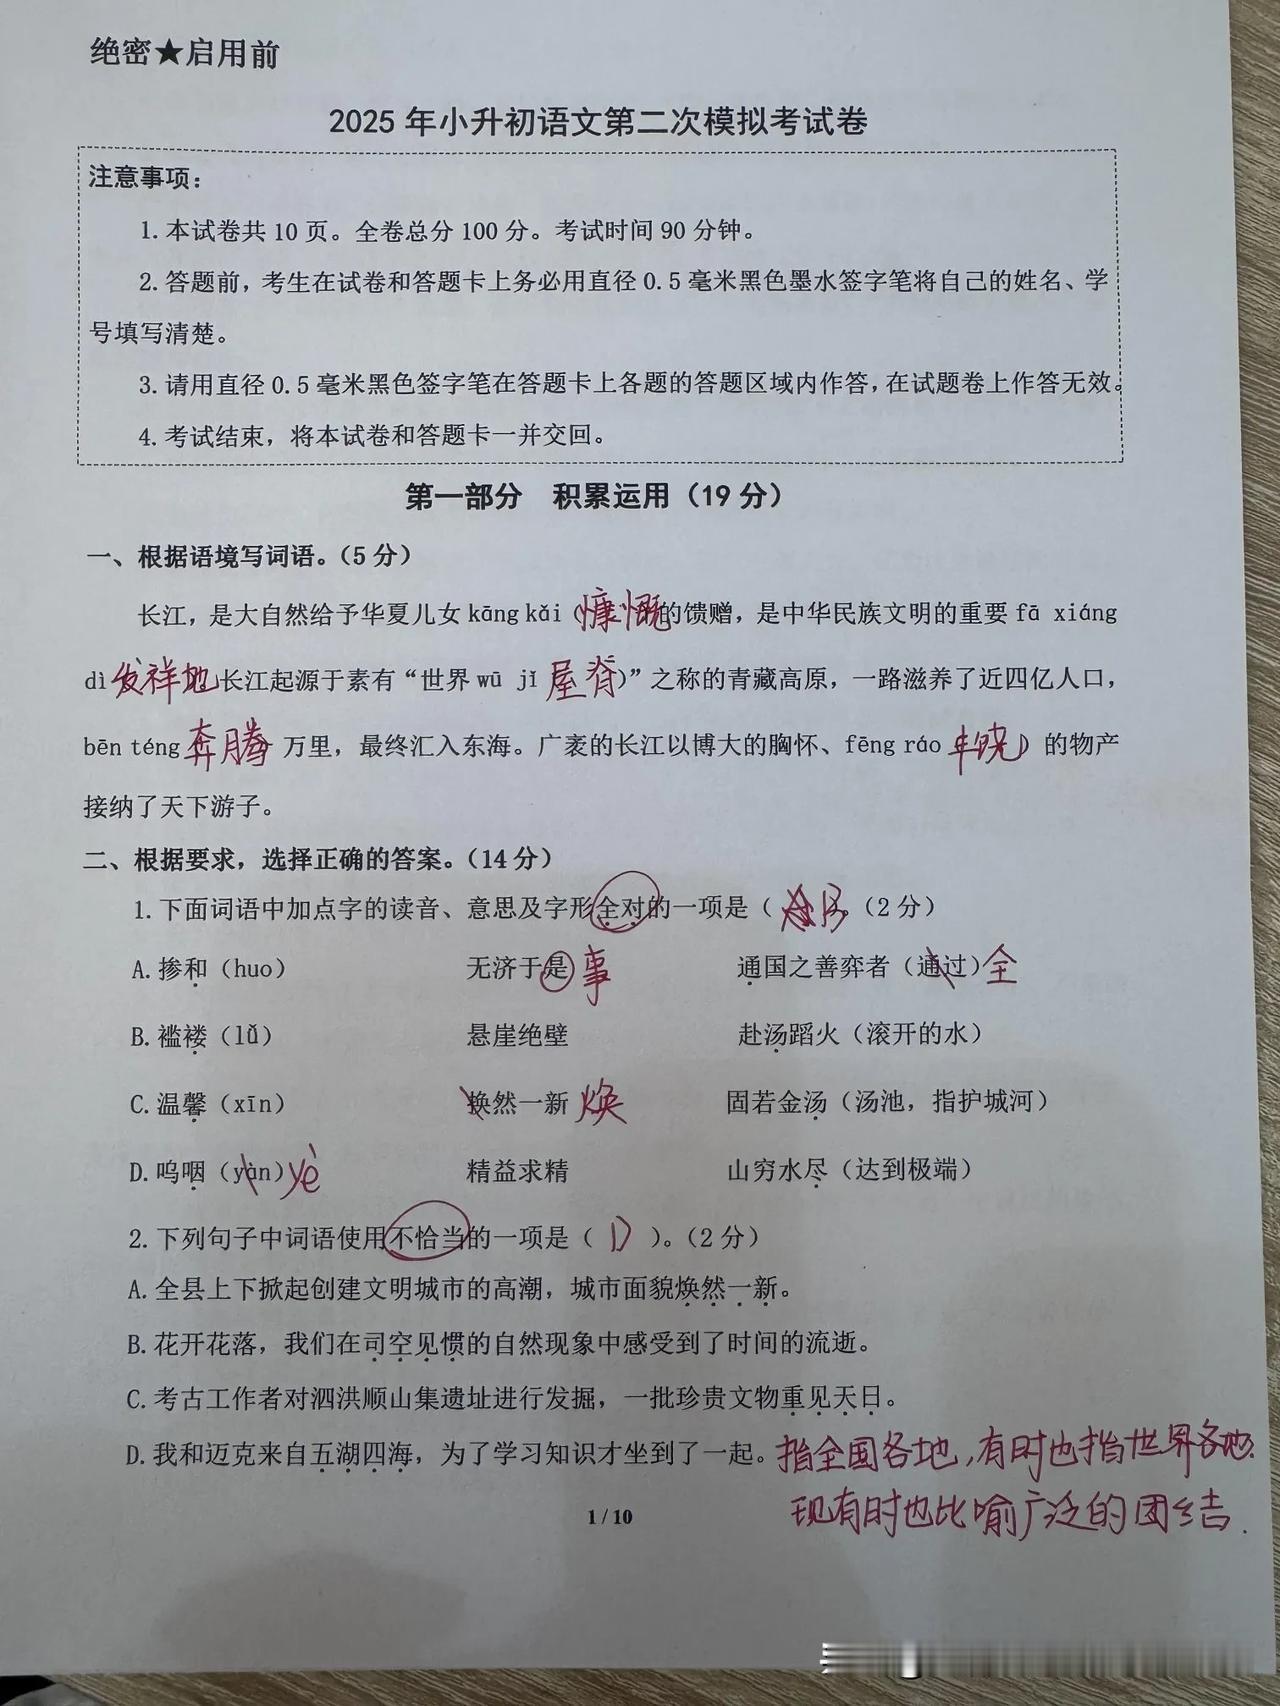 绝密★启用前
2025年小升初语文第二次模拟考试卷
注意事项：
1.本试卷共10页。全卷总分100分。考试时间90分钟。
2.答题前，考生在试卷和答题卡上务必用直径0.5毫米黑色墨水签字笔将自己的姓名、学
号填写清楚。
3.请用直径0.5毫米黑色签字笔在答题卡上各题的答题区域内作答，在试题卷上作答无效。
4.考试结束，将本试卷和答题卡一并交回。
第一部分 积累运用（19分）
一、根据语境写词语。（5分）
长江，是大自然给予华夏儿女kāng kǎi（慷慨的馈赠，是中华民族文明的重要fā xiáng
dì发祥地长江起源于素有“世界wū jǐ屋脊）”之称的青藏高原，一路滋养了近四亿人口，
bēn téng奔腾 万里，最终汇入东海。广袤的长江以博大的胸怀、fēng ráo丰饶）的物产
接纳了天下游子。
二、根据要求，选择正确的答案。（14分）
1.下面词语中加点字的读音、意思及字形全对的一项是（ B。（2分）
A.掺和（huo） 无济于是 事 通国之善弈者（通过）全
B.褴褛（lǚ） 悬崖绝壁 赴汤蹈火（滚开的水）
C.温馨（xīn） 换然一新 焕 固若金汤（汤池，指护城河）
D.呜咽（yàn）yè 精益求精 山穷水尽（达到极端）
2.下列句子中词语使用不恰当的一项是（ D ）。（2分）
A.全县上下掀起创建文明城市的高潮，城市面貌焕然一新。
B.花开花落，我们在司空见惯的自然现象中感受到了时间的流逝。
C.考古工作者对泗洪顺山集遗址进行发掘，一批珍贵文物重见天日。
D.我和迈克来自五湖四海，为了学习知识才坐到了一起。指全国各地，有时也指世界各地.
现有时也比喻广泛的团结.
1/10